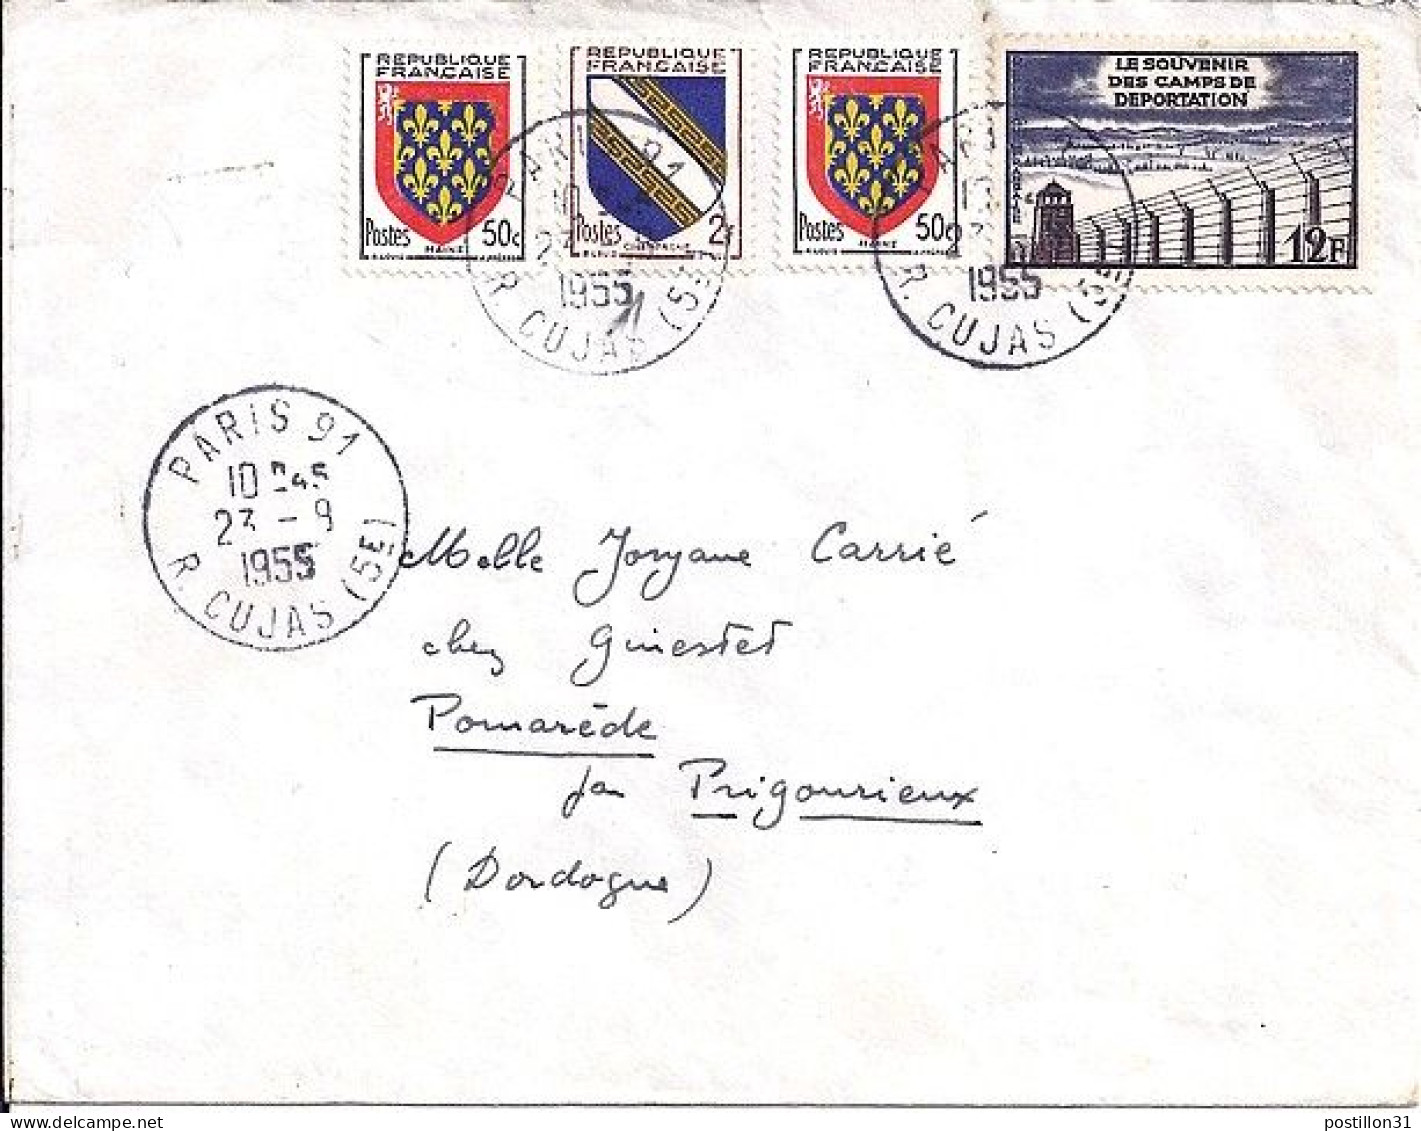 REPUBLIQUE
FRANÇAISE
Postes 50c
MAINE
REPUBLIQUE
FRANÇAISE
Postes 2f
CHAMPAGNE
REPUBLIQUE
FRANÇAISE
Postes 50c
MAINE
LE SOUVENIR
DES CAMPS DE
DEPORTATION
12F
PARIS 91
10
23
1955
R. CUJAS (5E)
PARI
1955
R. CUJAS (5E)
PARIS 91
10 H45
23 - 9
1955
R. CUJAS (5E)
Melle Josyane Carrié
chez Ginestet
Pomarède
par Prigourieux
(Dordogne)
delcampe.net
postillon31